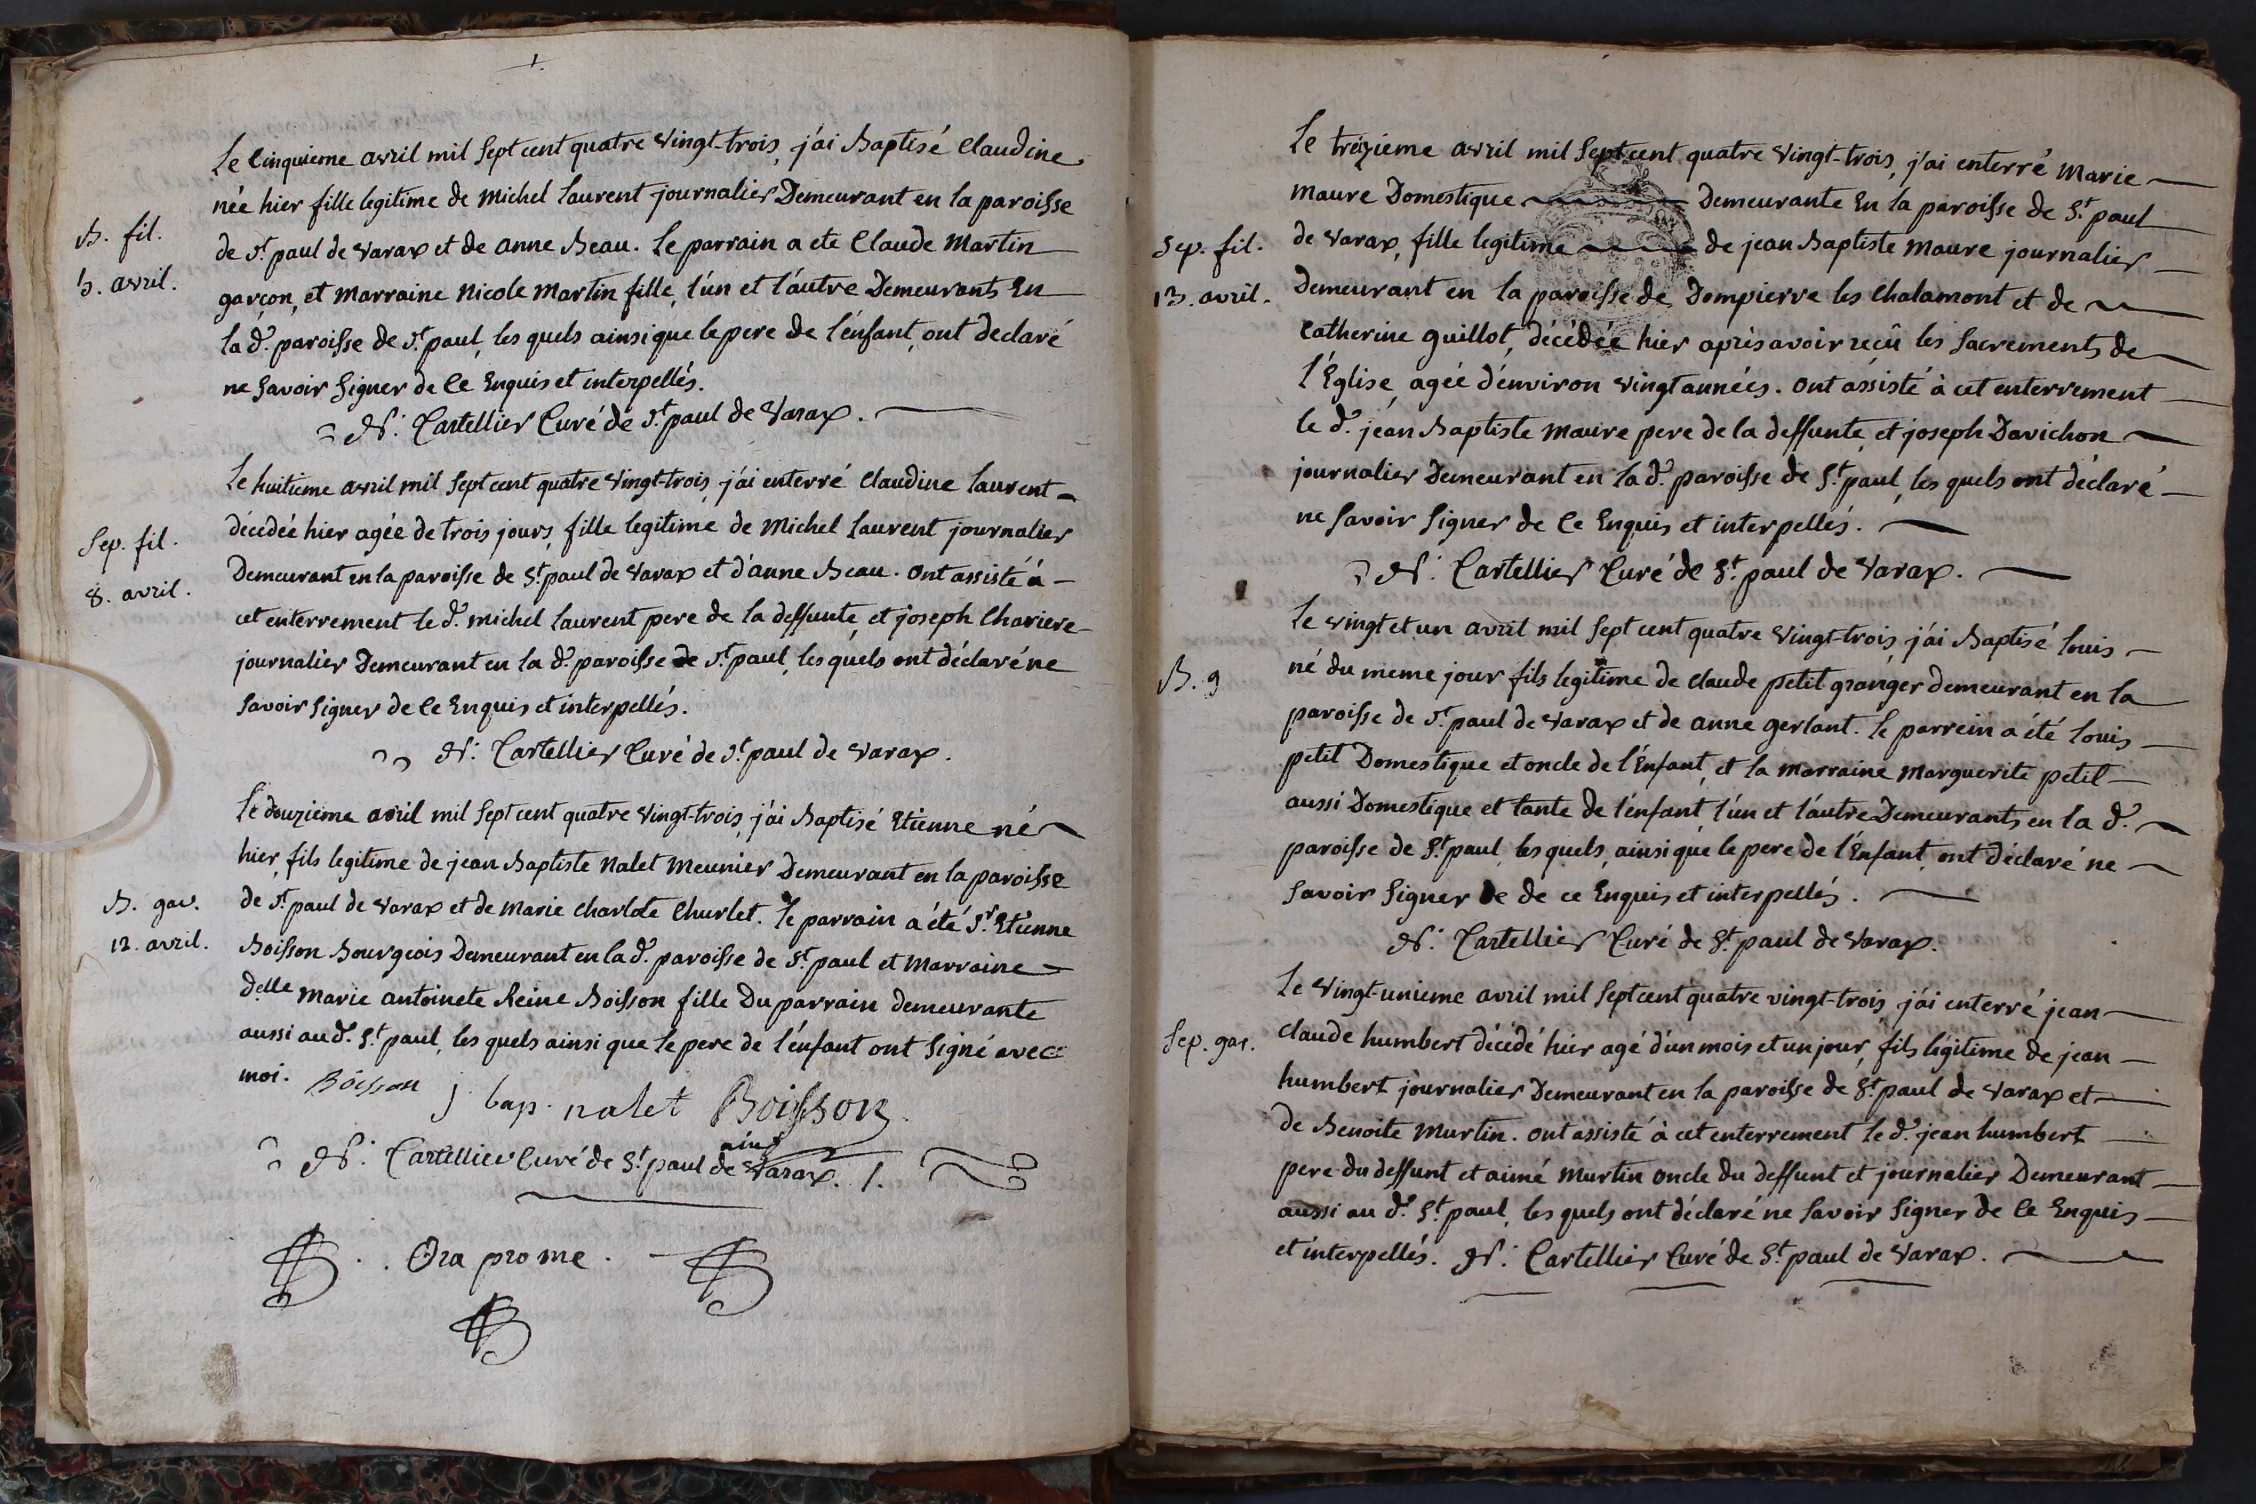 1.
Le Cinquieme avril mil Sept cent quatre vingt-trois, j'ai Baptisé Claudine
née hier fille legitime de Michel Laurent journalier Demeurant en la paroisse
B. fil.
de St paul de Varax et de anne Beau. Le parrain a ete Claude Martin
5. avril.
garçon, et Marraine Nicole Martin fille, l'un et l'autre Demeurants En
la de. paroisse de St. paul, les quels ainsi que le pere de l'enfant, ont declaré
ne Savoir Signer de Ce Enquis et interpellés.
N. Cartellier Curé de St. paul de Varax.
Le huitieme avril mil Sept cent quatre Vingt-trois, j'ai enterré Claudine Laurent
Sep. fil.
décedée hier agée de trois jours, fille legitime de Michel Laurent journalier
8. avril.
Demeurant en la paroisse de St. paul de Varax et d'anne Beau. ont assisté à
cet enterrement le d. michel Laurent pere de la deffunte, et joseph Chariere
journalier Demeurant en la de. paroisse de St. paul, les quels ont déclaré ne
Savoir Signer de Ce Enquis et interpellés.
N. Cartellier Curé de St. paul de Varax.
Le douzieme avril mil Sept cent quatre Vingt-trois, j'ai Baptisé Etienne né
hier, fils legitime de jean Baptiste Nalet Meunier Demeurant en la paroisse
B. gar.
de St. paul de Varax et de Marie Charlote Churlet. Le parrain a été Sr. Etienne
12. avril.
Boisson Bourgeois Demeurant en la de. paroisse de St. paul et Marraine
Delle Marie antoinete Reine Boisson fille Du parrain demeurante
aussi aud. St. paul, les quels ainsi que le pere de l'enfant ont Signé avec
moi. Boisson j. bap. nalet Boisson
ainé
N. Cartellier Curé de St. paul de Varax. /.
Ora pro me.
Le treizieme avril mil Sept cent quatre Vingt-trois, j'ai enterré Marie
Maure Domestique Demeurante En la paroisse de St. paul
Sep. fil.
de Varax, fille legitime de jean Baptiste Maure journalier
13. avril.
Demeurant en la paroisse de Dompierre les Chalamont et de
Catherine Guillot, décédée hier après avoir recû les Sacrements de
l'Eglise, agée d'environ vingt années. ont assisté à cet enterrement
le d. jean Baptiste Maure pere de la deffunte, et joseph Davichon
journalier Demeurant en la de. paroisse de St. paul, les quels ont déclaré
ne Savoir Signer de Ce Enquis et interpellés.
N. Cartellier Curé de St. paul de Varax.
Le vingt et un avril mil Sept cent quatre Vingt-trois, j'ai Baptisé Louis
B. g
né du meme jour fils legitime de Claude petit granger demeurant en la
paroisse de St. paul de Varax et de anne gerlant. le parrein a été Louis
petit Domestique et oncle de l'Enfant, et la marraine Marguerite petit
aussi Domestique et tante de l'enfant, l'un et l'autre Demeurants en la de.
paroisse de St. paul, les quels, ainsi que le pere de l'Enfant, ont déclaré ne
Savoir Signer de de ce Enquis et interpellés.
N. Cartellier Curé de St. paul de Varax.
Le Vingt-unieme avril mil Sept cent quatre vingt-trois, j'ai enterré jean
Sep. gar.
Claude humbert décédé hier agé d'un mois et un jour, fils légitime de jean
humbert journalier Demeurant en la paroisse de St. paul de Varax et
de Benoite Murtin. ont assisté à cet enterrement le d. jean humbert
pere du deffunt et aimé Murtin oncle du deffunt et journalier Demeurant
aussi au d. St. paul, les quels ont déclaré ne Savoir Signer de Ce Enquis
et interpellés. N. Cartellier Curé de St. paul de Varax.